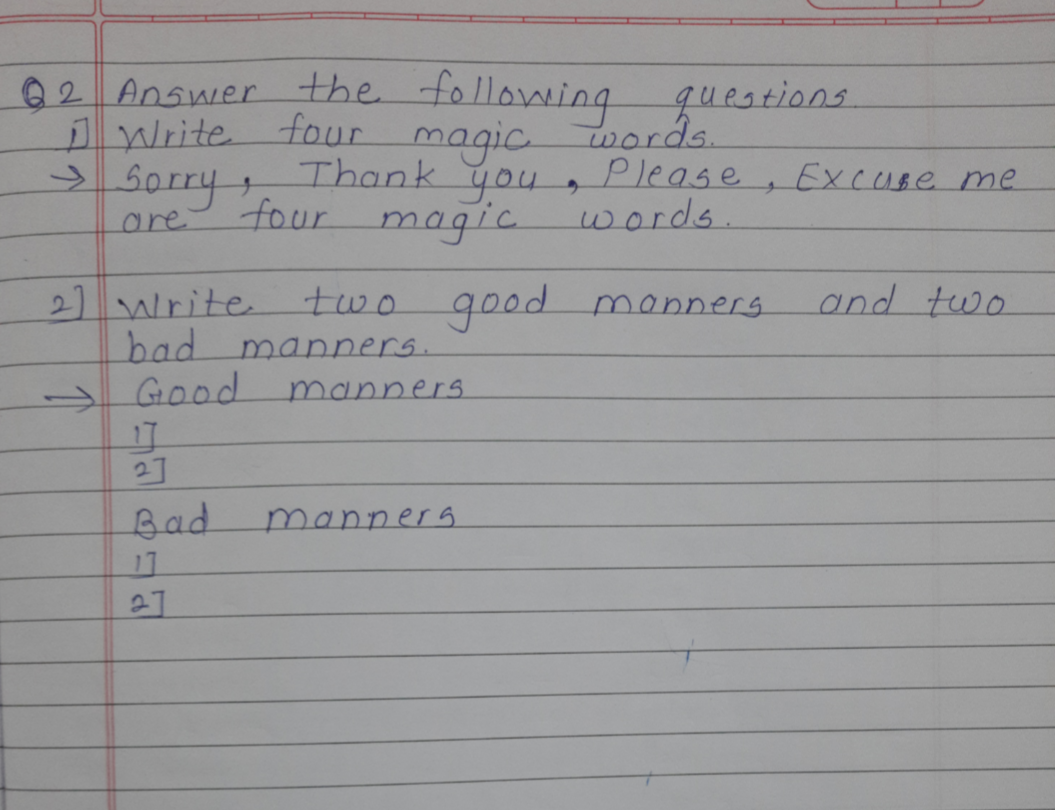 Q2 Answer the following questions.
1] Write four magic words.
→ Sorry, Thank you, Please, Excuse me
are four magic words.
2] Write two good manners and two
bad manners.
→ Good manners
1]
2]
Bad manners
1]
2]